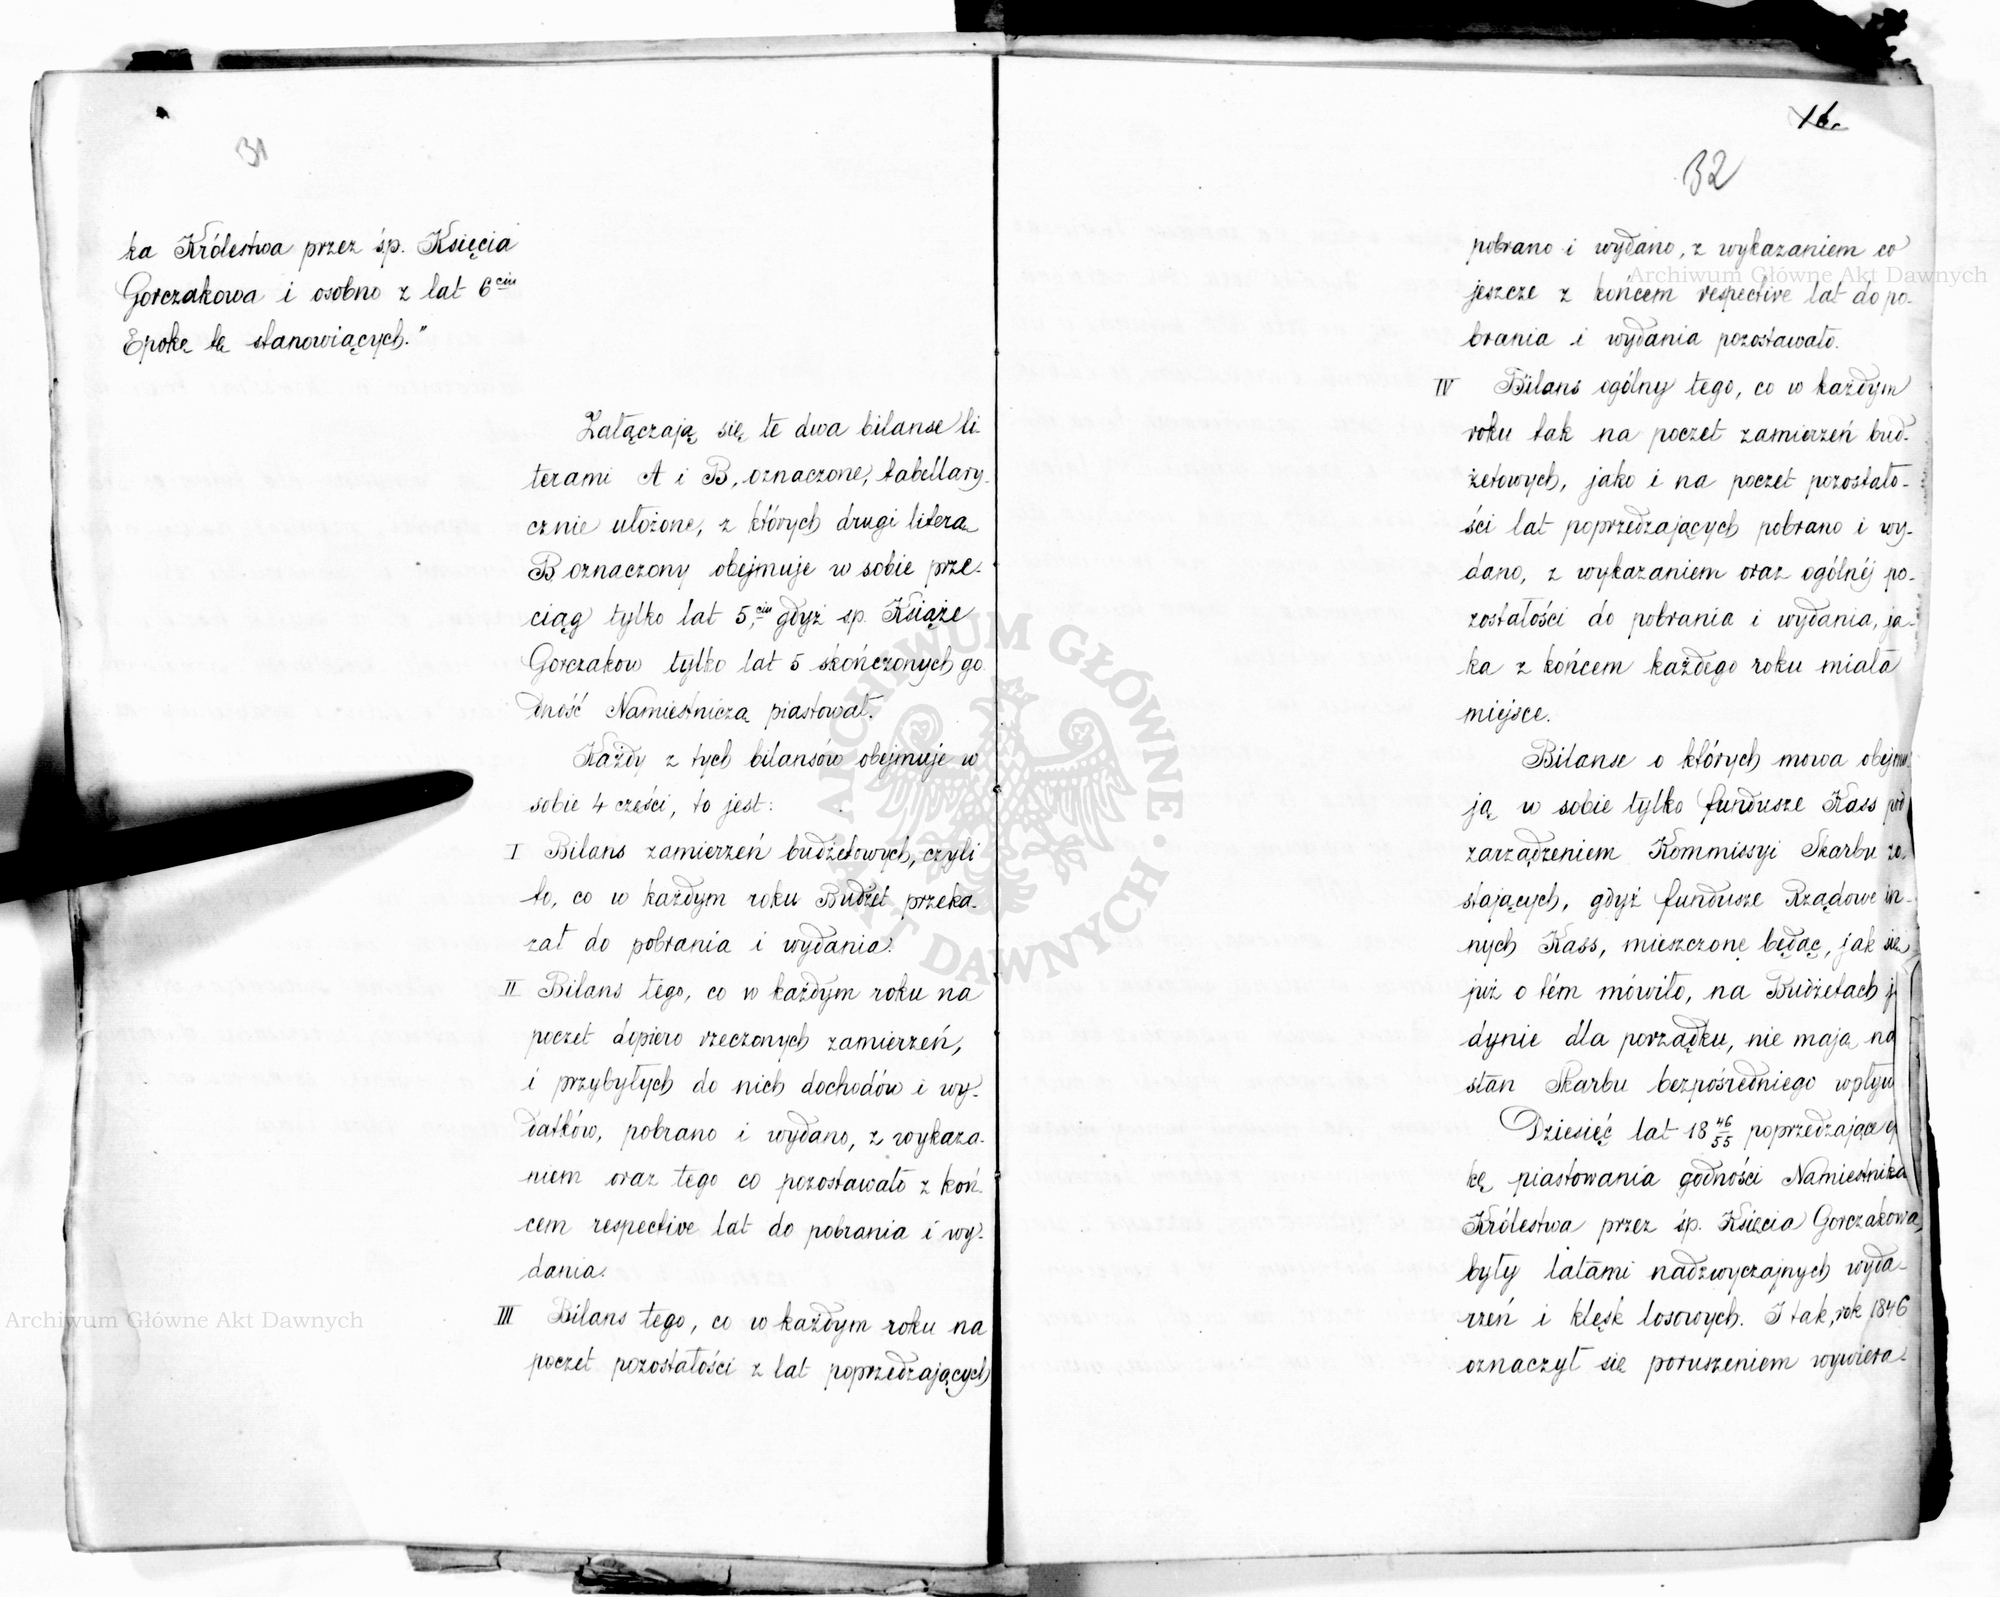 31
ka Królestwa przez śp. Księcia
Gorczakowa i osobno z lat 6ciu
Epokę tę stanowiących."
Załączają się te dwa bilanse li-
terami A i B, oznaczone, tabellary-
cznie ułożone, z których drugi litera
B oznaczony obejmuje w sobie prze-
ciąg tylko lat 5,ciu gdyż sp. Książe
Gorczakow tylko lat 5 skończonych go
dność Namiestniczą piastował.
Każdy z tych bilansów obejmuje w
sobie 4 części, to jest:
I Bilans zamierzeń budżetowych, czyli
to, co w każdym roku Budżet przeka-
zał do pobrania i wydania.
II Bilans tego, co w każdym roku na
poczet dopiero rzeczonych zamierzeń,
i przybyłych do nich dochodów i wy-
datków, pobrano i wydano, z wykaza-
niem oraz tego co pozostawało z koń-
cem respective lat do pobrania i wy-
dania.
III Bilans tego, co w każdym roku na
poczet pozostałości z lat poprzedzających
16
32
pobrano i wydano, z wykazaniem co
jeszcze z końcem respective lat do po-
brania i wydania pozostawało.
IV Bilans ogólny tego, co w każdym
roku tak na poczet zamierzeń bud-
żetowych, jako i na poczet pozostało-
ści lat poprzedzających pobrano i wy-
dano, z wykazaniem oraz ogólnéj po-
zostałości do pobrania i wydania, ja-
ka z końcem każdego roku miała
miejsce.
Bilanse o których mowa obejmu
ją w sobie tylko fundusze Kass pod
zarządzeniem Kommissyi Skarbu zo-
stających, gdyż fundusze Rządowe in-
nych Kass, mieszczone będąc, jak się
już o tém mówiło, na Budżetach je
dynie dla porządku, nie mają na
stan Skarbu bezpośredniego wpływ
Dziesięć lat 18 46/55 poprzedzające
kę piastowania godności Namiestnika
Królestwa przez śp. Księcia Gorczakowa,
były latami nadzwyczajnych wyda-
rzeń i klęsk losowych. I tak, rok 1846
oznaczył się poruszeniem wywiera-
Archiwum Główne Akt Dawnych
Archiwum Główne Akt Dawnych
ARCHIWUM GŁÓWNE AKT DAWNYCH